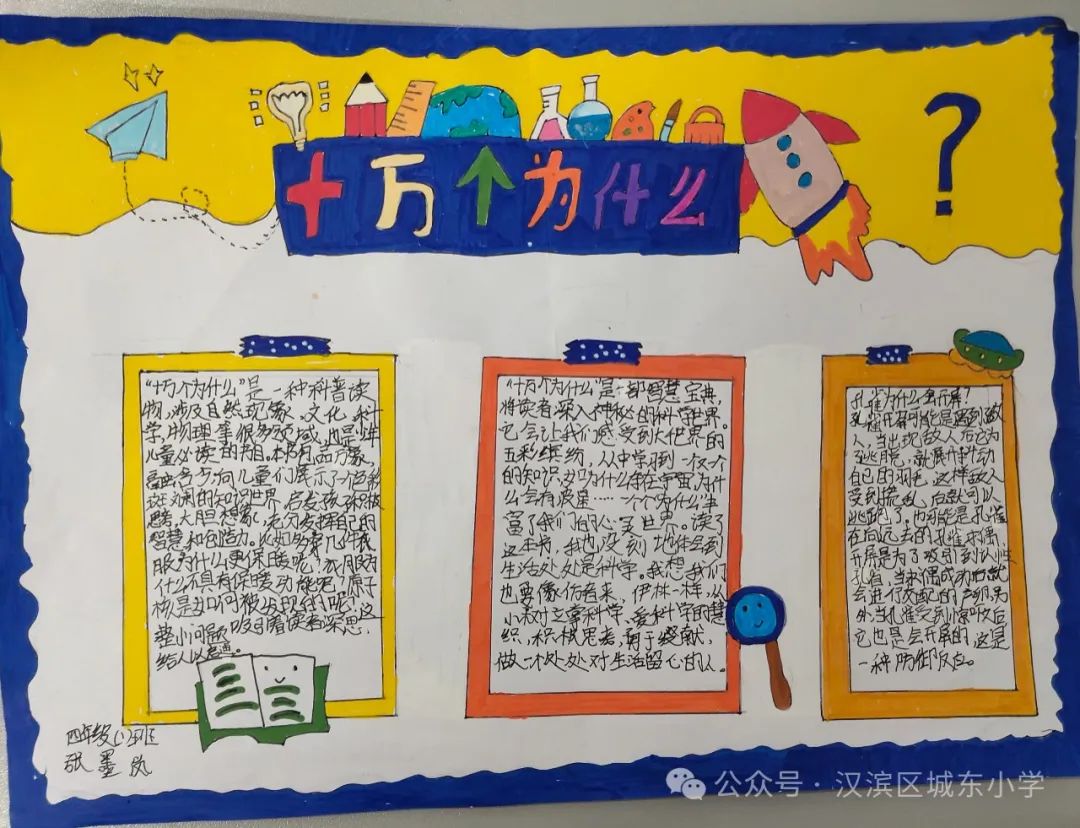 十万个为什么
?
“十万个为什么”是一种科普读
物,涉及自然现象、文化、科
学,物理等很多领域,也是少年
儿童必读的书目。本书有品万象,
向儿童们展示了一个色彩
斑斓的知识世界,启发孩子积极
思考,大胆想象,充分发挥自己的
智慧和创造力。比如多穿几件衣
服为什么更保暖呢,衣服为
什么不具有保暖功能呢,原子
核是如何被发现的呢!这
些小问题吸引着读者深思,
给人以启迪。
“十万个为什么”是一部智慧宝典
将读者深入神秘的科学世界。
它会让我们感受到大世界的
五彩缤纷,从中学习到一个个
的知识,如为什么存在宇宙,为什
么会有皮屑……一个个为什么丰
富了我们的心灵世界。读了
这本书,我也没刻地体会到
生活处处是科学。我想我们
也要像作者米·伊林一样,从
小树立掌科学、爱科学的
织,积极思考,勇于贡献,
做一个处处对生活留心的人。
孔雀为什么会开屏?
孔雀开屏可能是遇到敌
人,当出现敌人后它为
逃脱,就展开抖动
自己的羽毛,这样敌人
受到慌乱,后就可以
逃跑了,也可能是孔雀
在向配偶求偶,
开屏是为了吸引到心性
孔雀,当求偶成功后就
会进行交配的产卵,另
外当孔雀受到惊吓后
它也是会开屏的,这是
一种防御反应。
四年级(1)班
张墨岚
公众号·汉滨区城东小学